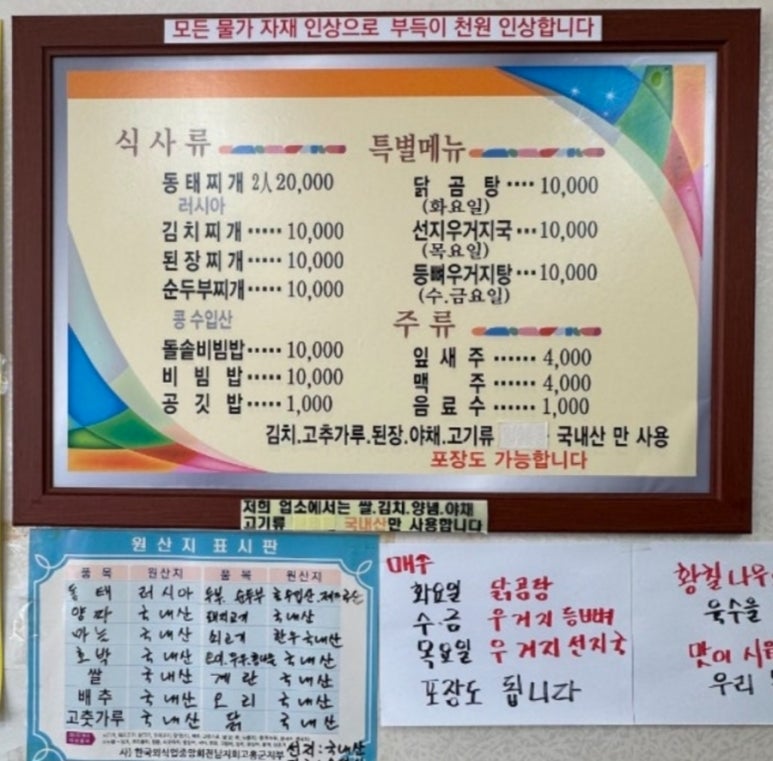 모든 물가 자재 인상으로 부득이 천원 인상합니다
식사류
동태찌개 2人 20,000
러시아
김치찌개 ····· 10,000
된장찌개 ····· 10,000
순두부찌개 ····· 10,000
콩 수입산
돌솥비빔밥 ····· 10,000
비빔밥 ····· 10,000
공깃밥 ····· 1,000
특별메뉴
닭곰탕 ···· 10,000
(화요일)
선지우거지국 ··· 10,000
(목요일)
등뼈우거지탕 ··· 10,000
(수.금요일)
주류
잎새주 ······ 4,000
맥주 ······ 4,000
음료수 ······ 1,000
김치.고추가루.된장.야채.고기류 국내산 만 사용
포장도 가능합니다
저희 업소에서는 쌀.김치.양념.야채
고기류 국내산만 사용합니다
원산지 표시판
품목 원산지 품목 원산지
동태 러시아 두부, 순두부
양파 국내산 돼지고기 국내산
마늘 국내산 쇠고기 한우국내산
호박 국내산 국내산
쌀 국내산 계란 국내산
배추 국내산 오리 국내산
고춧가루 국내산 닭 국내산
사)한국외식업중앙회전남지회고흥군지부
선지:국내산
매주
화요일 닭곰탕
수.금 우거지등뼈
목요일 우거지선지국
포장도 됩니다
황칠나무
육수를
맛이 시원
우리